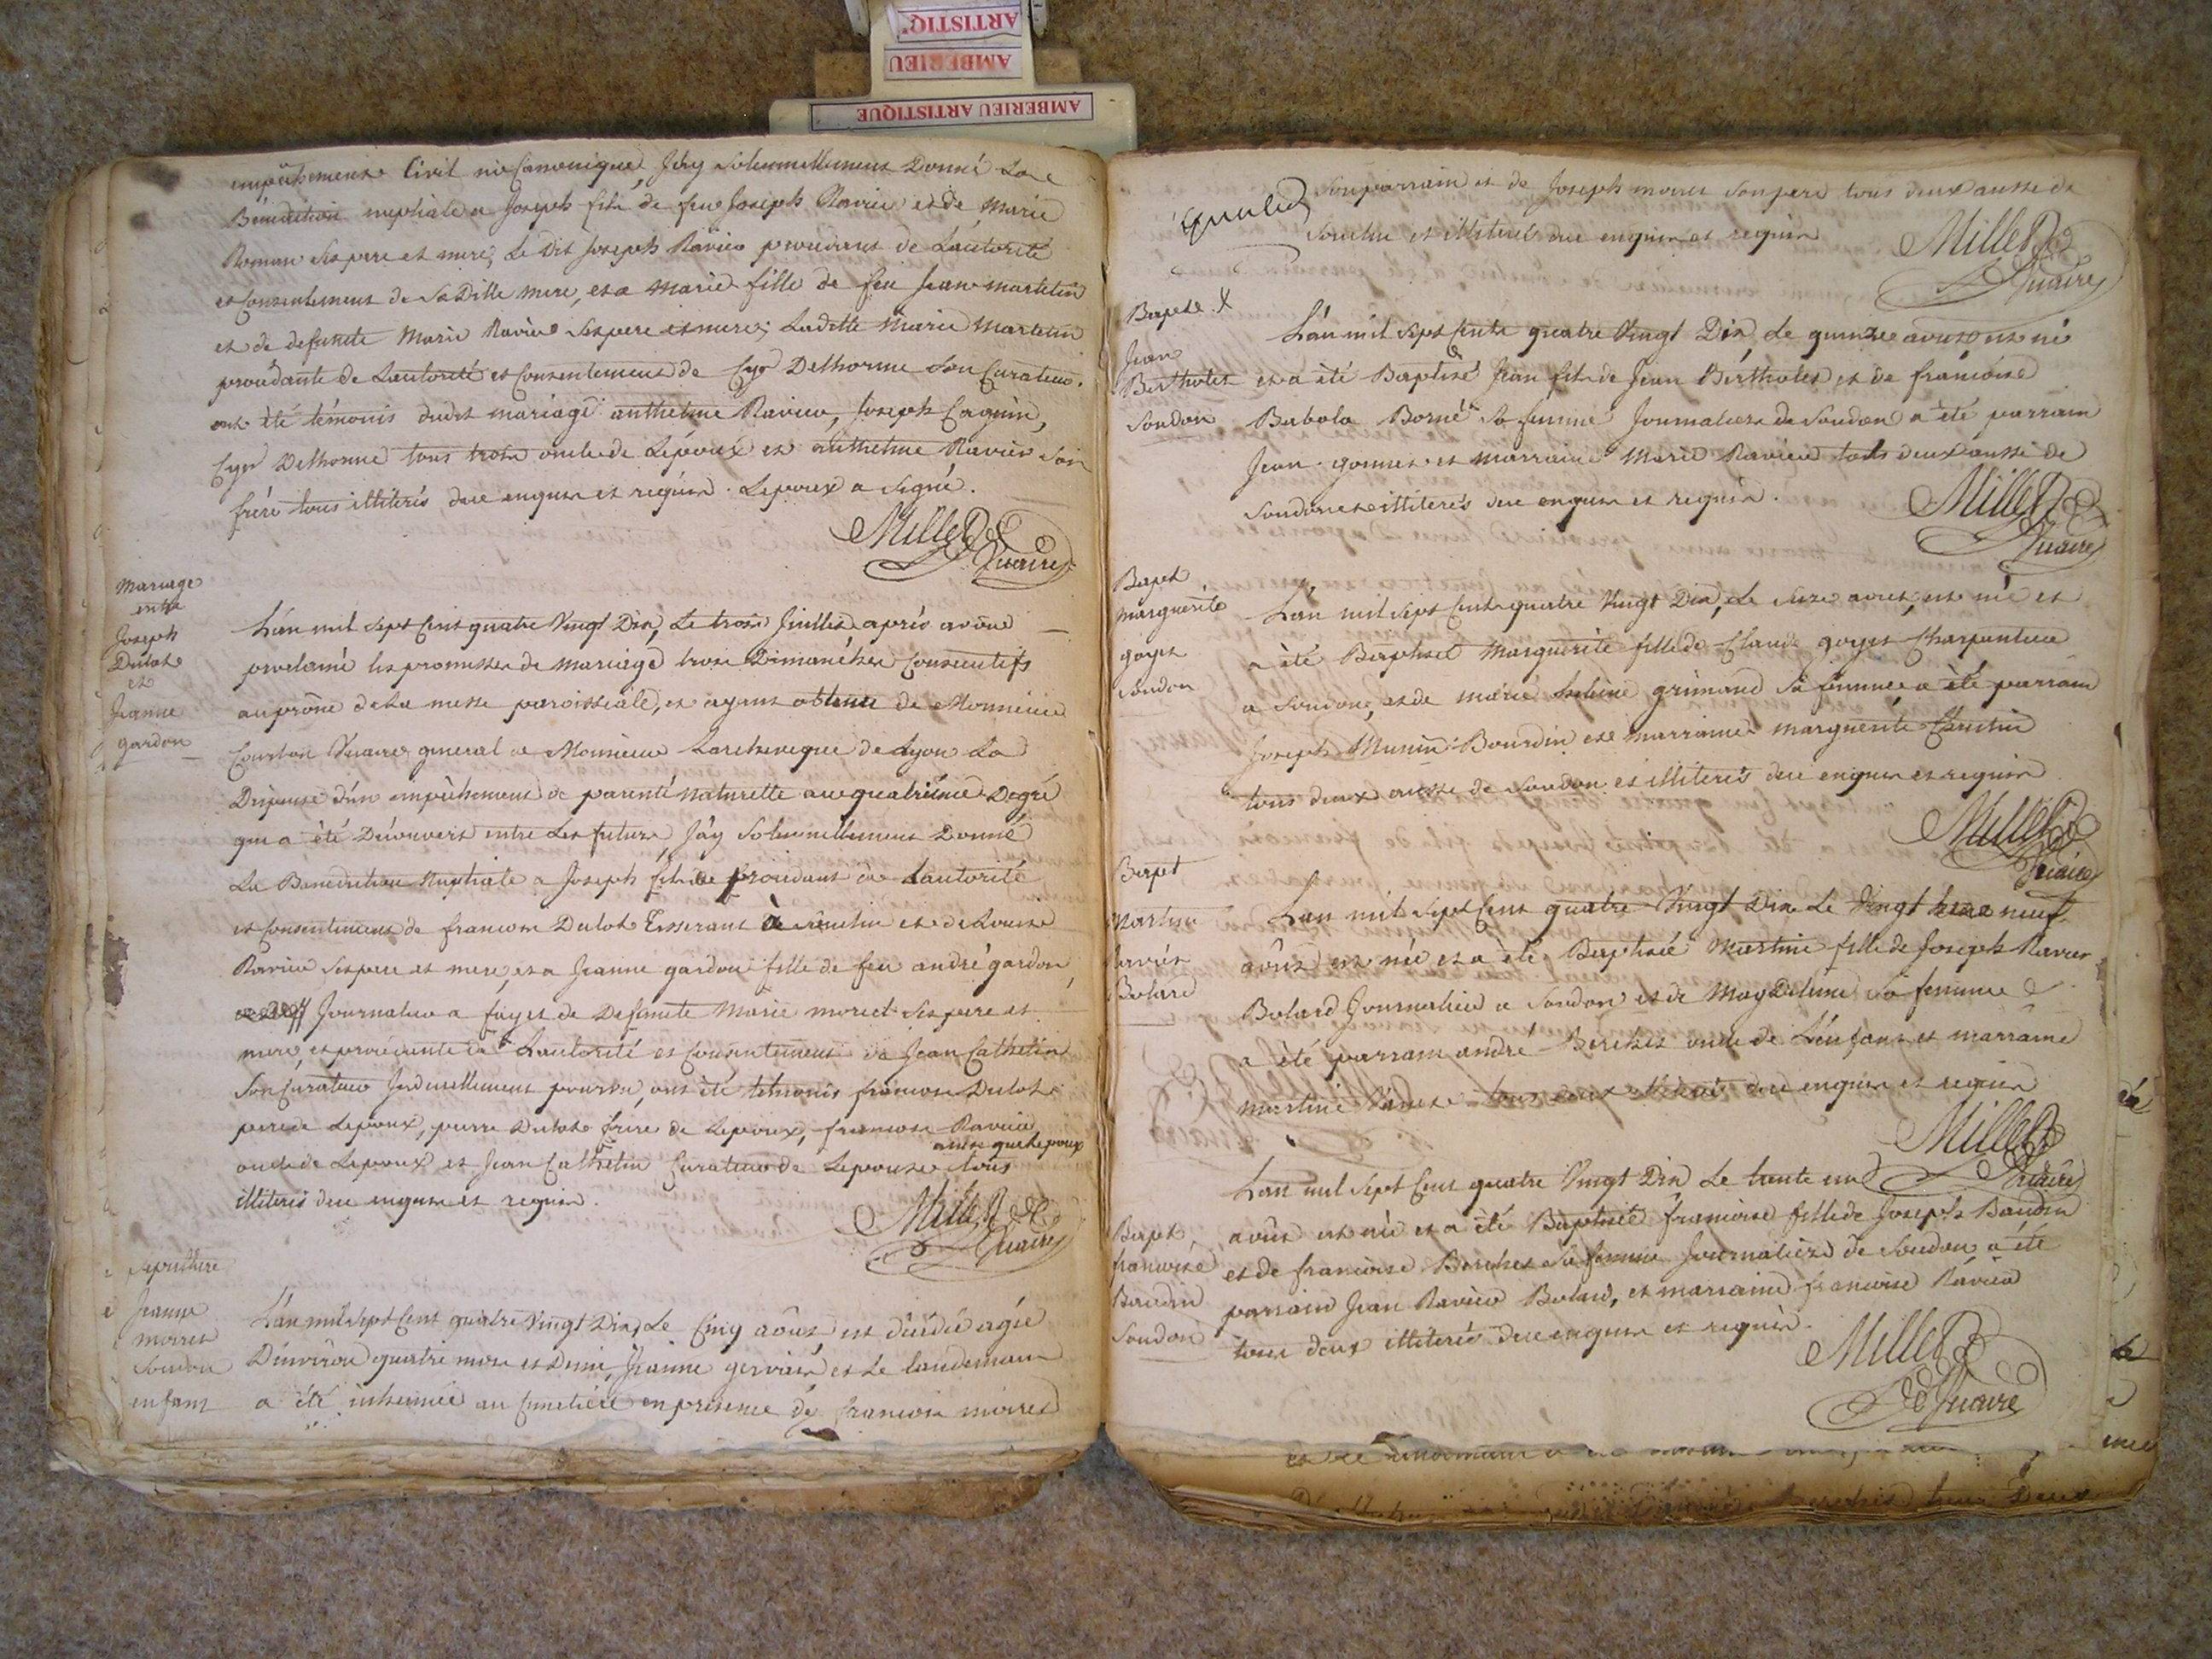 ARTISTIQ'
AMBERIEU
AMBERIEU ARTISTIQUE
empêchement Civil ni Canonique J'ay solennellement Donné La
Bénédiction nuptiale a Joseph fils de feu Joseph Ravier et de Marie
Roman ses pere et mere, Le Dit Joseph Ravier procedant de L'autorité
et Consentement de Sa Ditte mere, et a marie fille de feu Jean martelin
et de defunte Marie Ravier ses pere et mere, Laditte Marie Martelin
procedante de L'autorité et Consentement de Cyr Delhorme son Curateur.
ont été témoins dudit mariage anthelme Ravier, Joseph
Cyr Delhorme tous trois oncle de L'epoux et anthelme Ravier son
frere tous illiterés de ce enquis et requis. L'epoux a signé.
Millet
Vicaire
mariage
entre
Joseph
Dulot
et
Jeanne
gardon
L'an mil sept Cent quatre Vingt Dix, Le trois Juillet après avoir
proclamé les promesses de mariage trois Dimanches Consecutifs
au prône de La messe paroissiale, et ayant obtenu de Monsieur
Courbon Vicaire general de Monsieur L'archeveque de Lyon La
Dispense d'un empêchement de parenté naturelle au quatrième Degré
qui a été Découvert entre Les futurs, J'ay solennellement Donné
La Benediction Nuptiale a Joseph fils de procedant de L'autorité
et Consentement de francois Dulot Tisserant à et de Louise
Ravier ses pere et mere, et a Jeanne gardon fille de feu andré gardon
Journalier a et de Defunte Marie moret ses pere et
mere, et procedante de L'autorité et Consentement de Jean Cathelin
Son Curateur pourvu, ont été témoins francois Dulot
pere de L'epoux, pierre Dulot frere de L'epoux, francois Ravier
oncle de L'epoux et Jean Cathelin Curateur de L'epouse tous
ainsi que L'epoux
illiterés de ce enquis et requis.
Millet
Vicaire
Sepulture
Jeanne
moiret
Soudon
enfant
L'an mil sept Cent quatre Vingt Dix, Le Cinq août est décédée agée
D'environ quatre mois et Demi, Jeanne et Le landemain
a été inhumée au Cimetière en presence de francois moiret
Son parrain et de Joseph moiret son pere tous deux aussi de
Soudon et illiterés de ce enquis et requis
Millet
Vicaire
Bapt.
Jean
Bertholet
Soudon
L'an mil sept Cent quatre Vingt Dix, Le quinze aout est né
et a été Baptisé Jean fils de Jean Bertholet et de francoise
Babola Borné sa femme Journaliers de Soudon a été parrain
Jean gonnet et marraine Marie Ravier tous deux aussi de
Soudon et illiterés de ce enquis et requis.
Millet
Vicaire
Bapt
marguerite
goyet
Soudon
L'an mil sept Cent quatre Vingt Dix, Le seize aout est née et
a été Baptisée Marguerite fille de Claude goyet Charpentier
a Soudon, et de marie grimand sa femme a été parrain
Joseph Bourdin et marraine marguerite
tous deux aussi de Soudon et illiterés de ce enquis et requis
Millet
Vicaire
Bapt
Martine
Ravier
Bolard
L'an mil sept Cent quatre Vingt Dix Le Vingt neuf
août est née et a été Baptisée Martine fille de Joseph Ravier
Bolard Journalier a Soudon et de Magdelene sa femme
a été parrain andré Berchet oncle de L'enfant et marraine
martine tous deux de ce enquis et requis
Millet
Vicaire
Bapt
francoise
Baudin
Soudon
L'an mil sept Cent quatre Vingt Dix Le trente un
août est née et a été Baptisée francoise fille de Joseph Baudin
et de francoise Berchet sa femme Journaliers de Soudon a été
parrain Jean Ravier Bolard, et marraine francoise Ravier
tous deux illiterés de ce enquis et requis.
Millet
Vicaire